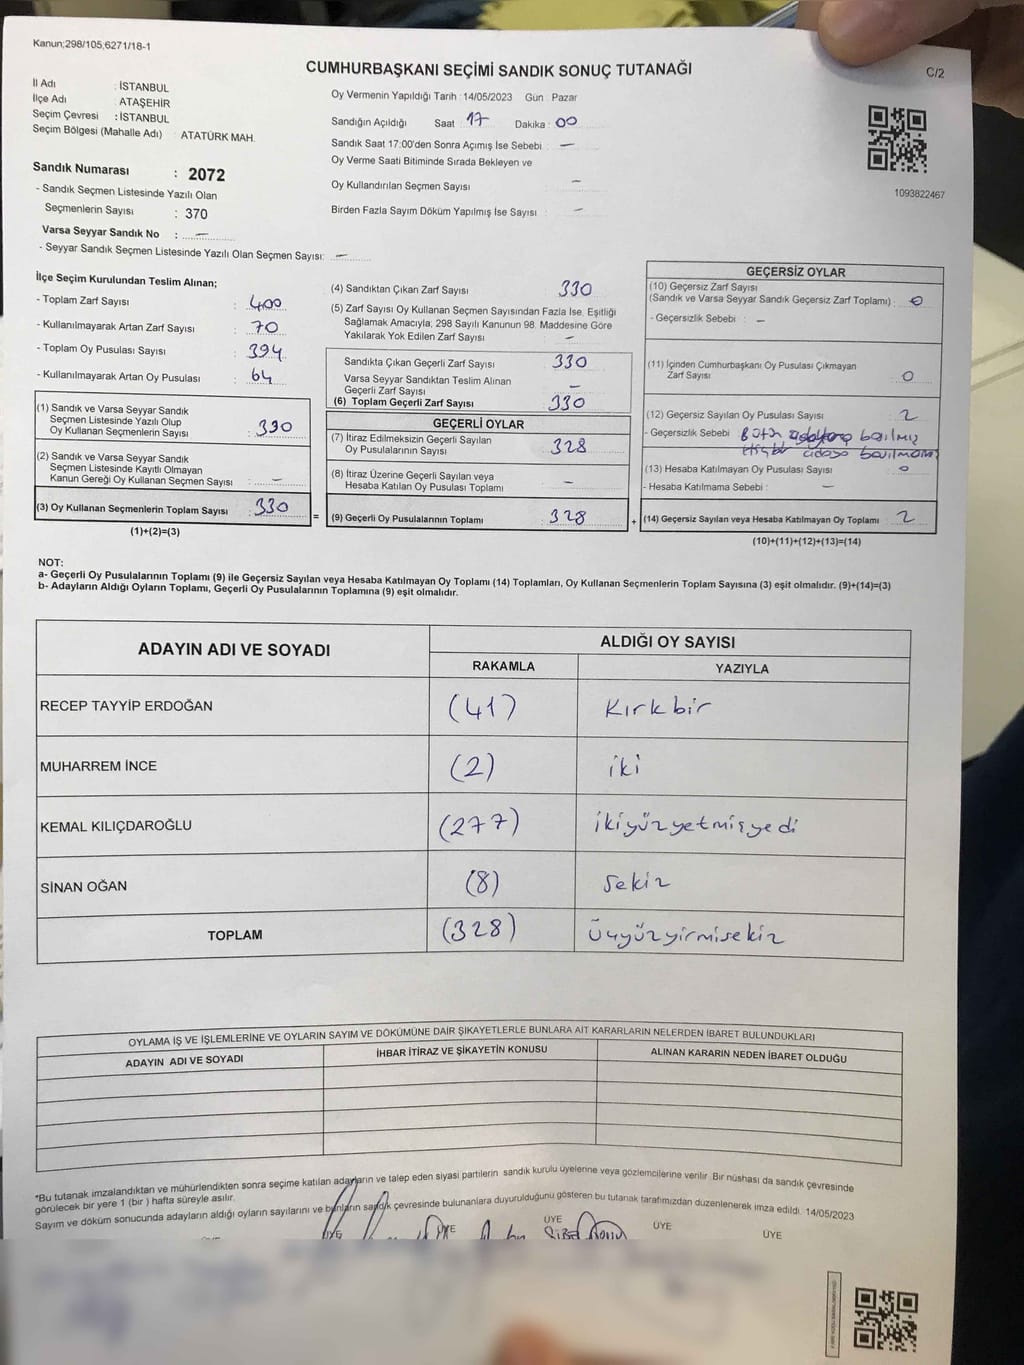 Kanun;298/105,6271/18-1
CUMHURBAŞKANI SEÇİMİ SANDIK SONUÇ TUTANAĞI
C/2
İl Adı : İSTANBUL
İlçe Adı : ATAŞEHİR
Seçim Çevresi : İSTANBUL
Seçim Bölgesi (Mahalle Adı) : ATATÜRK MAH.
Oy Vermenin Yapıldığı Tarih : 14/05/2023 Gün : Pazar
Sandığın Açıldığı Saat : 17 Dakika : 00
Sandık Saat 17:00'den Sonra Açımış İse Sebebi : —
Oy Verme Saati Bitiminde Sırada Bekleyen ve
Oy Kullandırılan Seçmen Sayısı : —
Birden Fazla Sayım Döküm Yapılmış İse Sayısı : —
1093822467
Sandık Numarası : 2072
- Sandık Seçmen Listesinde Yazılı Olan
Seçmenlerin Sayısı : 370
Varsa Seyyar Sandık No : —
- Seyyar Sandık Seçmen Listesinde Yazılı Olan Seçmen Sayısı: —
İlçe Seçim Kurulundan Teslim Alınan;
- Toplam Zarf Sayısı : 400
- Kullanılmayarak Artan Zarf Sayısı : 70
- Toplam Oy Pusulası Sayısı : 394
- Kullanılmayarak Artan Oy Pusulası : 64
(1) Sandık ve Varsa Seyyar Sandık
Seçmen Listesinde Yazılı Olup
Oy Kullanan Seçmenlerin Sayısı : 330
(2) Sandık ve Varsa Seyyar Sandık
Seçmen Listesinde Kayıtlı Olmayan
Kanun Gereği Oy Kullanan Seçmen Sayısı : —
(3) Oy Kullanan Seçmenlerin Toplam Sayısı : 330
(1)+(2)=(3)
=
(4) Sandıktan Çıkan Zarf Sayısı 330
(5) Zarf Sayısı Oy Kullanan Seçmen Sayısından Fazla İse, Eşitliği
Sağlamak Amacıyla; 298 Sayılı Kanunun 98. Maddesine Göre
Yakılarak Yok Edilen Zarf Sayısı : —
Sandıkta Çıkan Geçerli Zarf Sayısı 330
Varsa Seyyar Sandıktan Teslim Alınan
Geçerli Zarf Sayısı —
(6) Toplam Geçerli Zarf Sayısı 330
GEÇERLİ OYLAR
(7) İtiraz Edilmeksizin Geçerli Sayılan
Oy Pusulalarının Sayısı : 328
(8) İtiraz Üzerine Geçerli Sayılan veya
Hesaba Katılan Oy Pusulası Toplamı : —
(9) Geçerli Oy Pusulalarının Toplamı : 328
+
GEÇERSİZ OYLAR
(10) Geçersiz Zarf Sayısı
(Sandık ve Varsa Seyyar Sandık Geçersiz Zarf Toplamı) : 0
- Geçersizlik Sebebi : —
(11) İçinden Cumhurbaşkanı Oy Pusulası Çıkmayan
Zarf Sayısı : 0
(12) Geçersiz Sayılan Oy Pusulası Sayısı : 2
- Geçersizlik Sebebi : Bütün adaylara basılmış
Hiçbir adaya basılmamış
(13) Hesaba Katılmayan Oy Pusulası Sayısı : 0
- Hesaba Katılmama Sebebi : —
(14) Geçersiz Sayılan veya Hesaba Katılmayan Oy Toplamı : 2
(10)+(11)+(12)+(13)=(14)
NOT:
a- Geçerli Oy Pusulalarının Toplamı (9) ile Geçersiz Sayılan veya Hesaba Katılmayan Oy Toplamı (14) Toplamları, Oy Kullanan Seçmenlerin Toplam Sayısına (3) eşit olmalıdır. (9)+(14)=(3)
b- Adayların Aldığı Oyların Toplamı, Geçerli Oy Pusulalarının Toplamına (9) eşit olmalıdır.
ADAYIN ADI VE SOYADI
ALDIĞI OY SAYISI
RAKAMLA YAZIYLA
RECEP TAYYİP ERDOĞAN (41) Kırkbir
MUHARREM İNCE (2) iki
KEMAL KILIÇDAROĞLU (277) ikiyüzyetmişyedi
SİNAN OĞAN (8) Sekiz
TOPLAM (328) Üçyüzyirmisekiz
OYLAMA İŞ VE İŞLEMLERİNE VE OYLARIN SAYIM VE DÖKÜMÜNE DAİR ŞİKAYETLERLE BUNLARA AİT KARARLARIN NELERDEN İBARET BULUNDUKLARI
ADAYIN ADI VE SOYADI İHBAR İTİRAZ VE ŞİKAYETİN KONUSU ALINAN KARARIN NEDEN İBARET OLDUĞU
*Bu tutanak imzalandıktan ve mühürlendikten sonra seçime katılan adayların ve talep eden siyasi partilerin sandık kurulu üyelerine veya gözlemcilerine verilir. Bir nüshası da sandık çevresinde
görülecek bir yere 1 (bir ) hafta süreyle asılır.
Sayım ve döküm sonucunda adayların aldığı oyların sayılarını ve bunların sandık çevresinde bulunanlara duyurulduğunu gösteren bu tutanak tarafımızdan düzenlenerek imza edildi. 14/05/2023
ÜYE ÜYE ÜYE ÜYE ÜYE